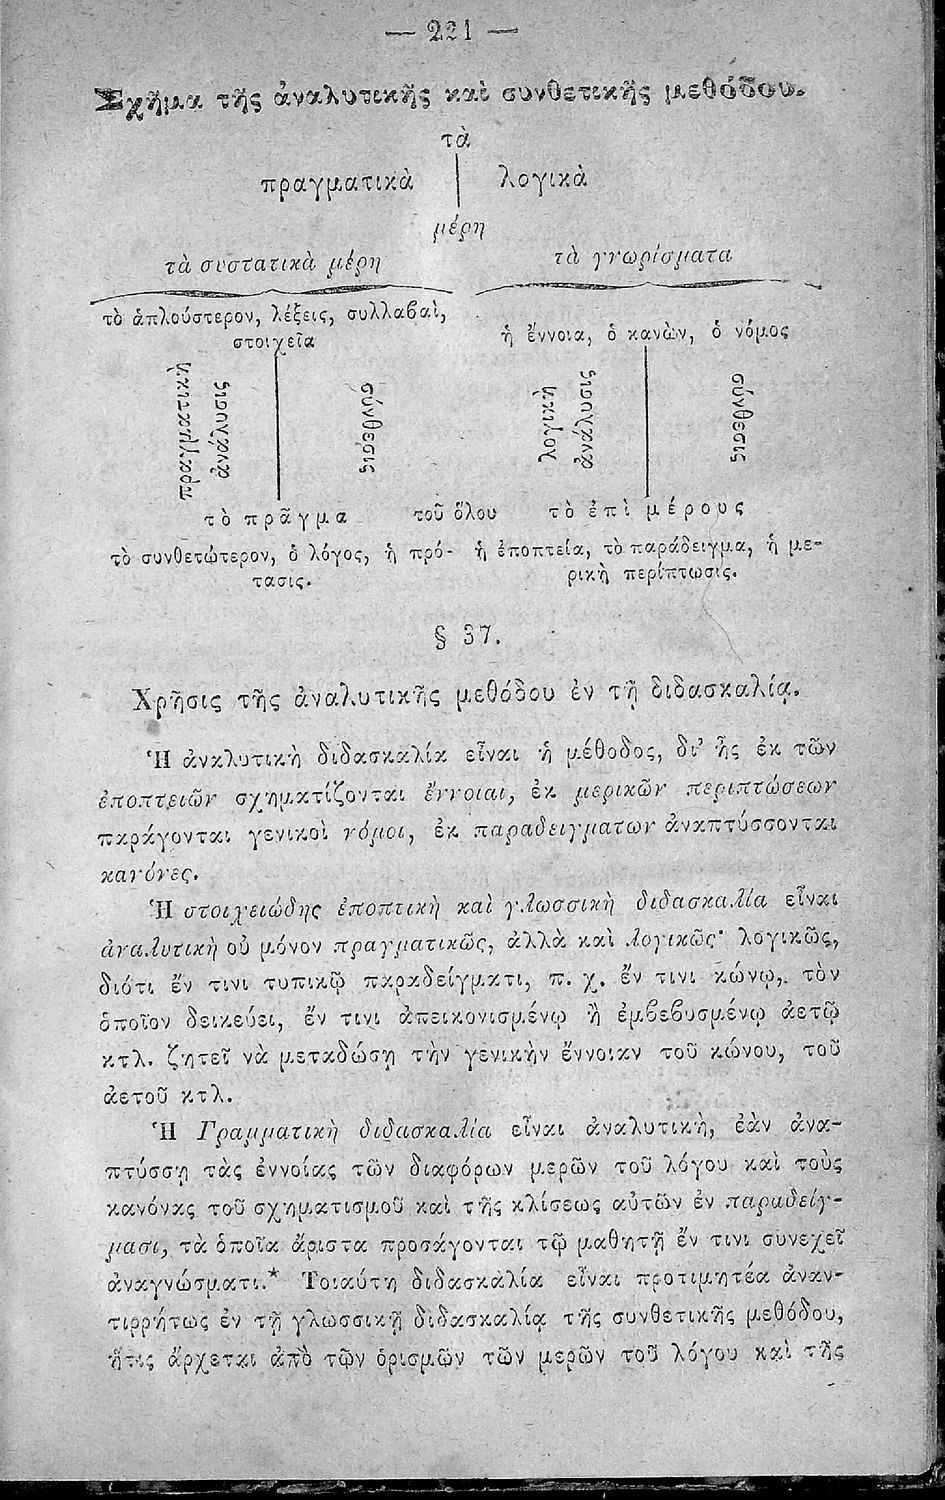 — 221 —
Σχῆμα τῆς ἀναλυτικῆς καὶ συνθετικῆς μεθόδου.
τὰ
πραγματικὰ λογικὰ
μέρη
τὰ συστατικὰ μέρη τὰ γνωρίσματα
τὸ ἁπλούστερον, λέξεις, συλλαβαὶ,
στοιχεῖα
ἡ ἔννοια, ὁ κανὼν, ὁ νόμος
πραγματικὴ
ἀνάλυσις
σύνθεσις
λογικὴ
ἀνάλυσις
σύνθεσις
τὸ πρᾶγμα τοῦ ὅλου τὸ ἐπὶ μέρους
τὸ συνθετώτερον, ὁ λόγος, ἡ πρό- ἡ ἐποπτεία, τὸ παράδειγμα, ἡ με-
τασις. ρικὴ περίπτωσις.
§ 37.
Χρῆσις τῆς ἀναλυτικῆς μεθόδου ἐν τῇ διδασκαλίᾳ.
Ἡ ἀναλυτικὴ διδασκαλία εἶναι ἡ μέθοδος, δι' ἧς ἐκ τῶν
ἐποπτειῶν σχηματίζονται ἔννοιαι, ἐκ μερικῶν περιπτώσεων
παράγονται γενικοὶ νόμοι, ἐκ παραδειγματων ἀναπτύσσονται
κανόνες.
Ἡ στοιχειώδης ἐποπτικὴ καὶ γλωσσικὴ διδασκαλία εἶναι
ἀναλυτικὴ οὐ μόνον πραγματικῶς, ἀλλὰ καὶ λογικῶς· λογικῶς,
διότι ἔν τινι τυπικῷ παραδείγματι, π. χ. ἔν τινι κώνῳ, τὸν
ὁποῖον δεικεύει, ἔν τινι ἀπεικονισμένῳ ἢ ἐμβεβυσμένῳ ἀετῷ
κτλ. ζητεῖ νὰ μεταδώσῃ τὴν γενικὴν ἔννοιαν τοῦ κώνου, τοῦ
ἀετοῦ κτλ.
Ἡ Γραμματικὴ διδασκαλία εἶναι ἀναλυτικὴ, ἐὰν ἀνα-
πτύσσῃ τὰς ἐννοίας τῶν διαφόρων μερῶν τοῦ λόγου καὶ τοὺς
κανόνας τοῦ σχηματισμοῦ καὶ τῆς κλίσεως αὐτῶν ἐν παραδείγ-
μασι, τὰ ὁποῖα ἄριστα προσάγονται τῷ μαθητῇ ἔν τινι συνεχεῖ
ἀναγνώσματι.* Τοιαύτη διδασκαλία εἶναι προτιμητέα ἀναν-
τιρρήτως ἐν τῇ γλωσσικῇ διδασκαλίᾳ τῆς συνθετικῆς μεθόδου,
ἥτις ἄρχεται ἀπὸ τῶν ὁρισμῶν τῶν μερῶν τοῦ λόγου καὶ τῆς